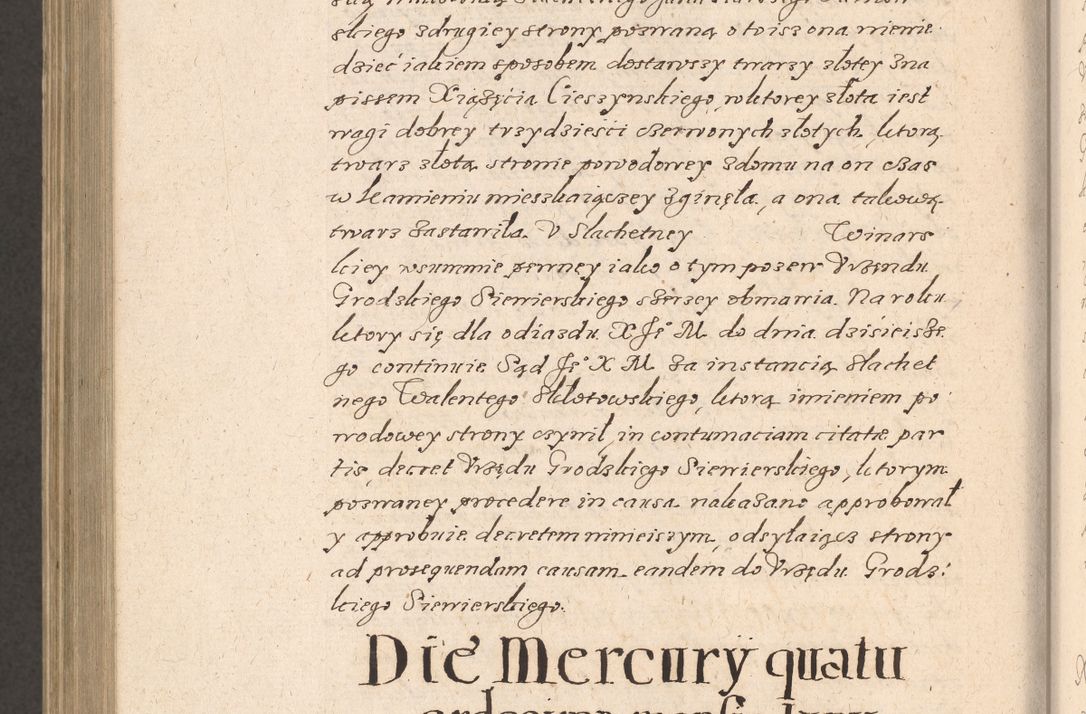 skiego z drugiey strony pozwaną o to isz ona niewie
dzieć iakiem sposobem dostawszy twarzy złotey zna
pissem Xiążęcia Cieszynskiego, w ktorey złota iest
wagi dobrey trzydzieści czerwonych złotych, ktorą
twarz złotą stronie powodowey z domu na on czas
w Kamieniu mieszkaiączey zginęła, a ona takową
twarz zastawiła. V Slachetney Winars
kiey w summie pewney iako o tym pozew Vrzędu
Grodzkiego Siewierskiego szerzey obmawia. Na roku
ktory się dla odiazdu X Je° M. do dnia dzisieisze
go continuie Sąd Je° X M. za instancią Slachet
nego Walentego Skłotowskiego, ktorą imieniem po
wodowey strony czynił, in contumaciam citatæ par
tis, decret Vrzędu Grodzkiego Siewierskiego, ktorym
pozwaney procedere in causa nakazano approbował
y approbuie decretem ninieiszym, odsylaiącz strony
ad prosequendam causam eandem do Vrzędu Grodz:
kiego Siewierskiego.
Die Mercurÿ quatu